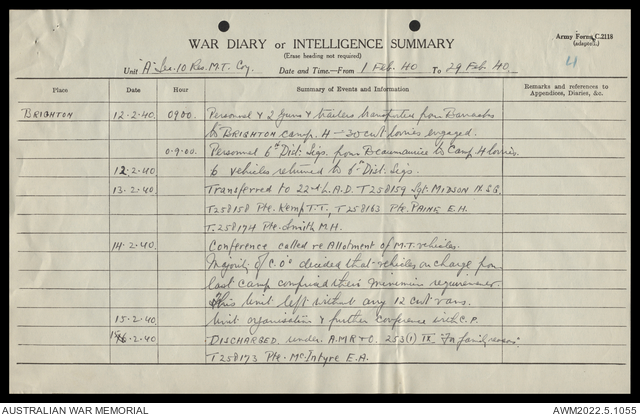 Army Form C.2118
(adapted.)
4
WAR DIARY or INTELLIGENCE SUMMARY
(Erase heading not required)
Unit "A" Sec. 10 Res. M.T. Coy. Date and Time.—From 1 Feb. 40 To 29 Feb. 40.
Place Date Hour Summary of Events and Information Remarks and references to Appendices, Diaries, &c.
BRIGHTON 12.2.40. 0900. Personnel & 2 Guns & trailers transported from Barracks
to BRIGHTON camp. 4 - 30 cwt lorries engaged.
0.9.00. Personnel 6th Dist. Sigs. from Beaumaurice to Camp. 4 lorries.
12.2.40 6 vehicles returned to 6th Dist. Sigs.
13.2.40. Transferred to 22nd L.A.D. T258159 Sgt. MIDSON
T258158 Pte. Kemp T.T., T258163 Pte. PAINE E.H.
T.258174 Pte. Smith M.H.
14.2.40. Conference called re Allotment of M.T. vehicles.
Majority of C.O's decided that vehicles on charge from
last camp comprised their minimum requirements.
This unit left without any 12 cwt vans.
15.2.40. Unit organisation & further conference with C.P.
.2.40 DISCHARGED under A.M.R.&O. 253(1) IX "For family reasons"
T258173 Pte. McIntyre E.A.
AUSTRALIAN WAR MEMORIAL AWM2022.5.1055